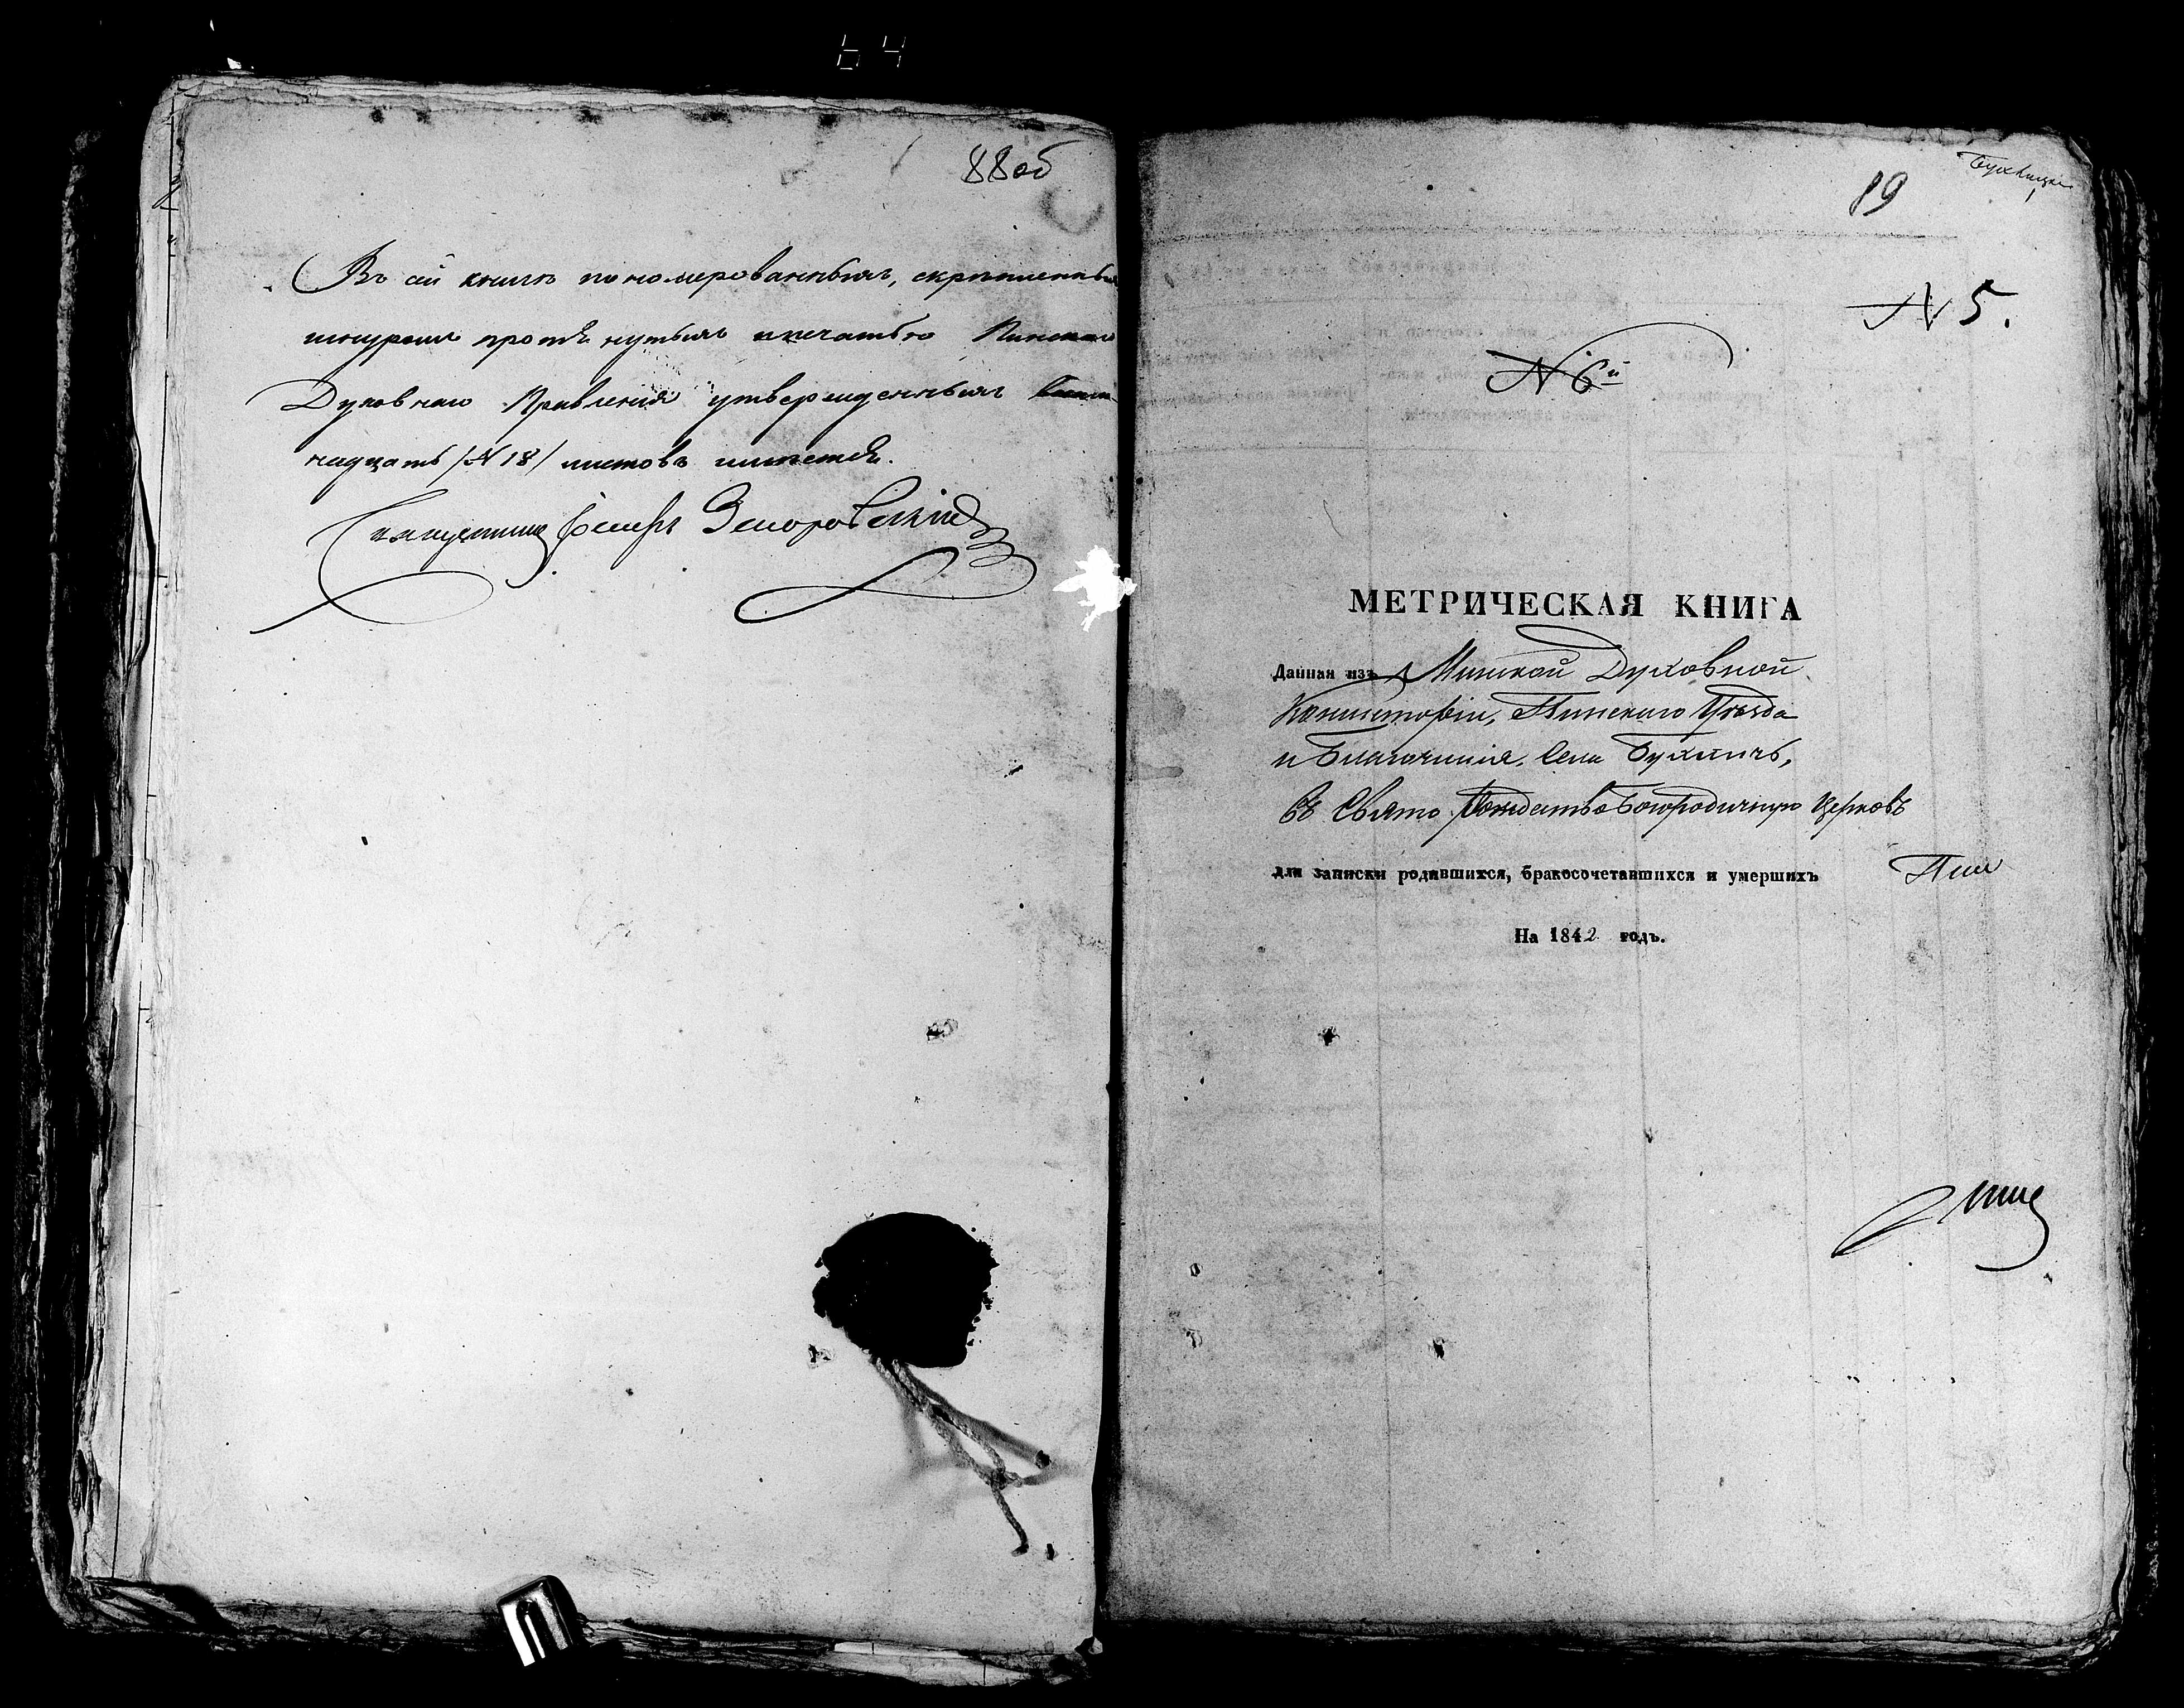 64
88об
Въ сей книгѣ пономерованныхъ, скрѣпленныхъ
шнуромъ протянутыхъ и печатью Пинскаго
Духовнаго Правленія утвержденныхъ восем
надцать /№ 18/ листовъ имѣется.
Іосифъ
89
№ 5.
№ 6й
МЕТРИЧЕСКАЯ КНИГА
Данная изъ Минской Духовной
Консисторіи, Пинскаго Уѣзда
и Благочинія. Села Бухличь,
въ Свято Рождество Богородичную Церковь
для записки родившихся, бракосочетавшихся и умершихъ
На 1842 годъ.